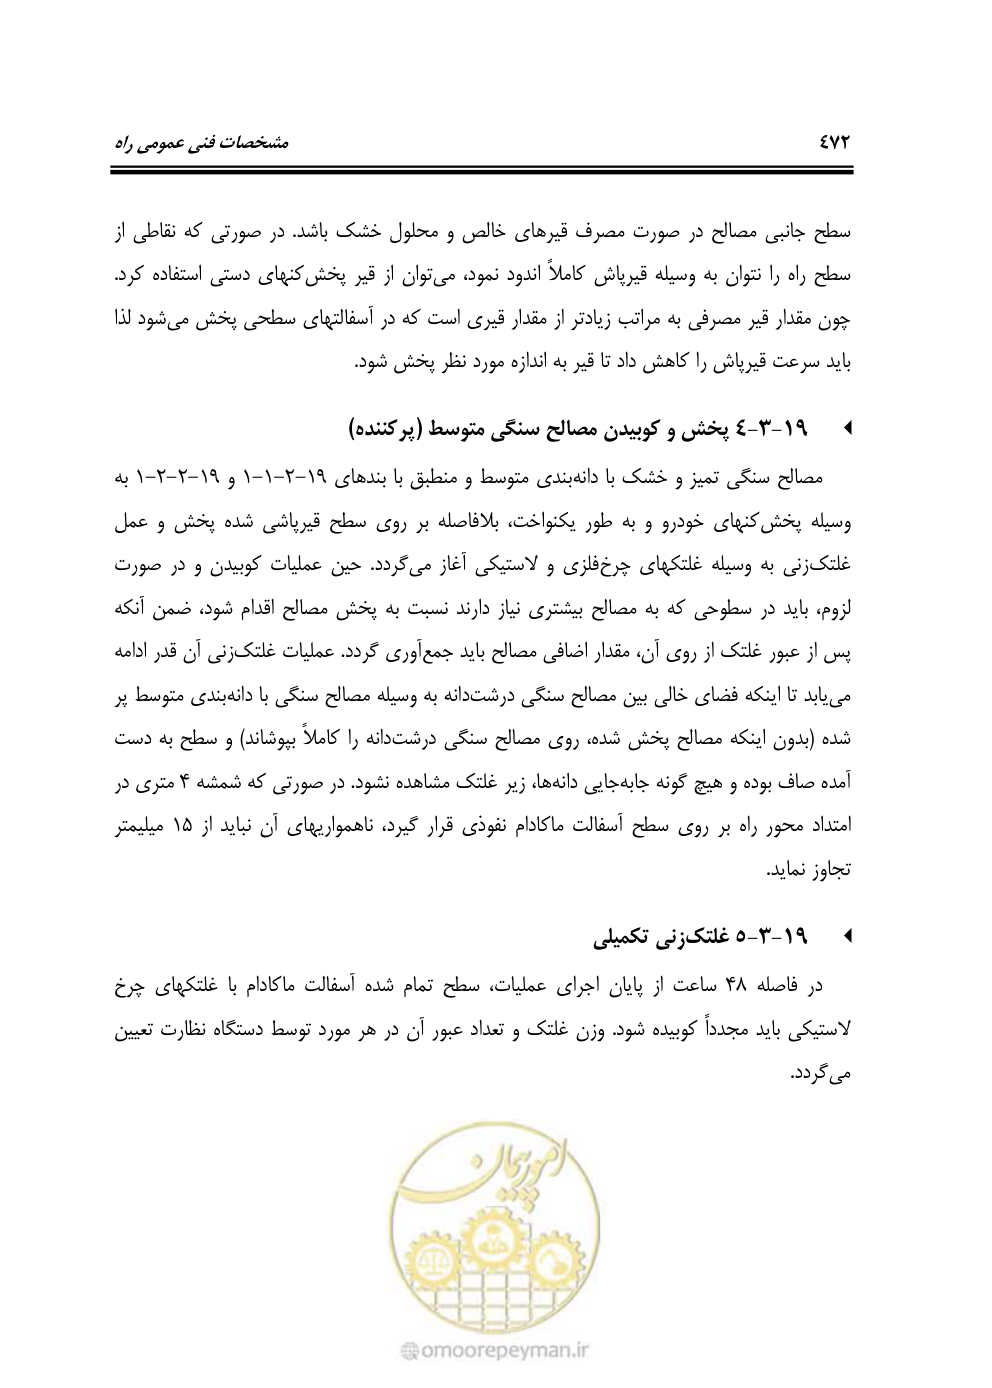 ۴۷۲ مشخصات فنی عمومی راه
سطح جانبی مصالح در صورت مصرف قیرهای خالص و محلول خشک باشد. در صورتی که نقاطی از
سطح راه را نتوان به وسیله قیرپاش کاملاً اندود نمود، می‌توان از قیر پخش‌کنهای دستی استفاده کرد.
چون مقدار قیر مصرفی به مراتب زیادتر از مقدار قیری است که در آسفالتهای سطحی پخش می‌شود لذا
باید سرعت قیرپاش را کاهش داد تا قیر به اندازه مورد نظر پخش شود.
۱۹-۳-۴ پخش و کوبیدن مصالح سنگی متوسط (پرکننده)
مصالح سنگی تمیز و خشک با دانه‌بندی متوسط و منطبق با بندهای ۱۹-۲-۱-۱ و ۱۹-۲-۲-۱ به
وسیله پخش‌کنهای خودرو و به طور یکنواخت، بلافاصله بر روی سطح قیرپاشی شده پخش و عمل
غلتک‌زنی به وسیله غلتکهای چرخ‌فلزی و لاستیکی آغاز می‌گردد. حین عملیات کوبیدن و در صورت
لزوم، باید در سطوحی که به مصالح بیشتری نیاز دارند نسبت به پخش مصالح اقدام شود، ضمن آنکه
پس از عبور غلتک از روی آن، مقدار اضافی مصالح باید جمع‌آوری گردد. عملیات غلتک‌زنی آن قدر ادامه
می‌یابد تا اینکه فضای خالی بین مصالح سنگی درشت‌دانه به وسیله مصالح سنگی با دانه‌بندی متوسط پر
شده (بدون اینکه مصالح پخش شده، روی مصالح سنگی درشت‌دانه را کاملاً بپوشاند) و سطح به دست
آمده صاف بوده و هیچ گونه جابه‌جایی دانه‌ها، زیر غلتک مشاهده نشود. در صورتی که شمشه ۴ متری در
امتداد محور راه بر روی سطح آسفالت ماکادام نفوذی قرار گیرد، ناهمواریهای آن نباید از ۱۵ میلیمتر
تجاوز نماید.
۱۹-۳-۵ غلتک‌زنی تکمیلی
در فاصله ۴۸ ساعت از پایان اجرای عملیات، سطح تمام شده آسفالت ماکادام با غلتکهای چرخ
لاستیکی باید مجدداً کوبیده شود. وزن غلتک و تعداد عبور آن در هر مورد توسط دستگاه نظارت تعیین
می‌گردد.
امور پیمان
omoorepeyman.ir